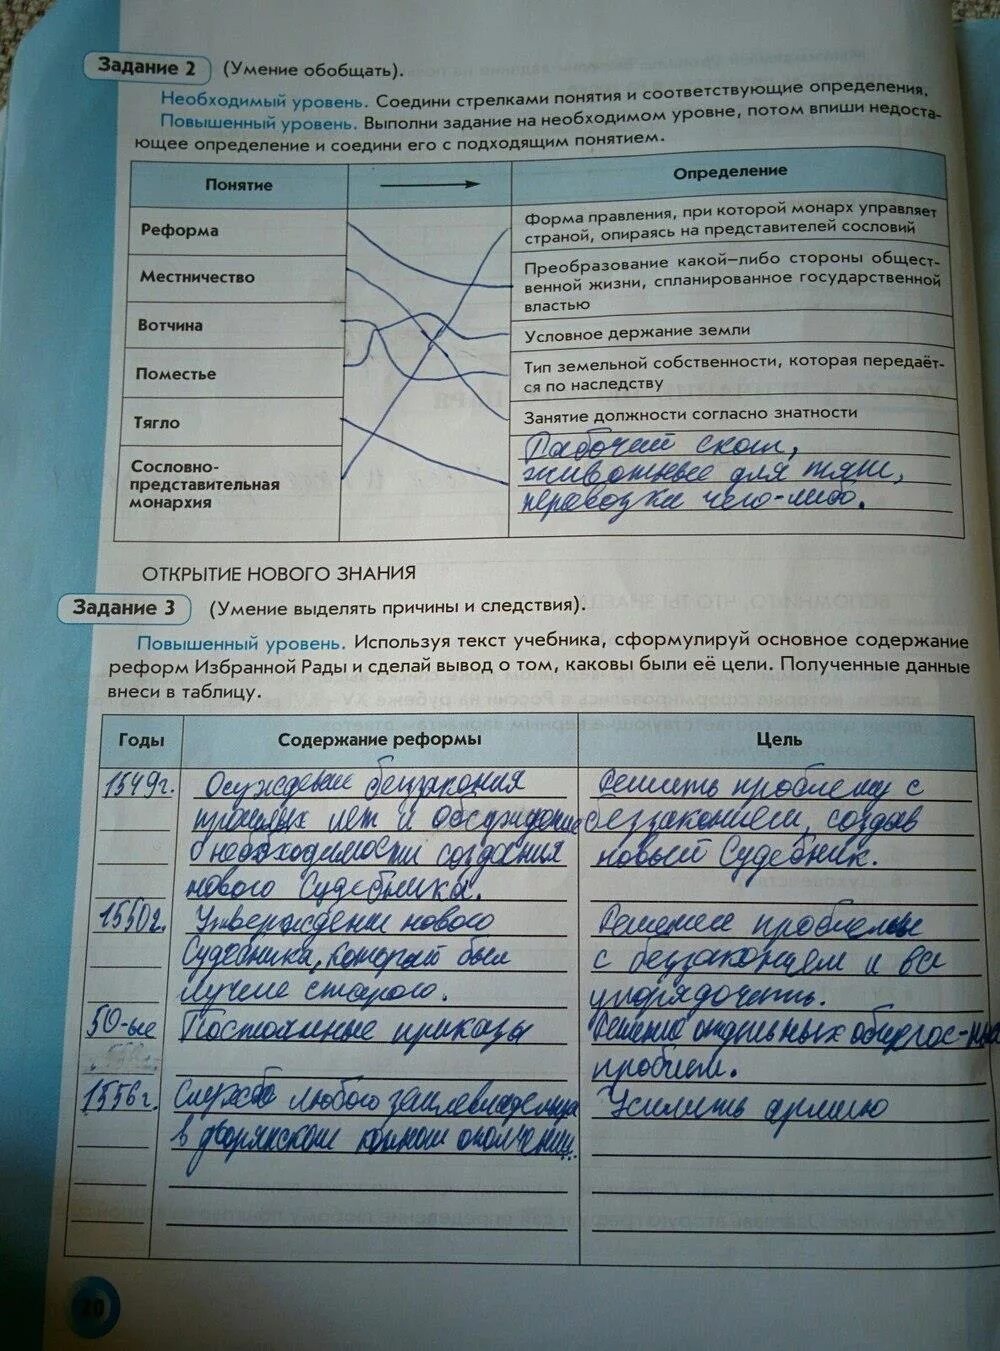 Задание 2 (Умение обобщать).
Необходимый уровень. Соедини стрелками понятия и соответствующие определения.
Повышенный уровень. Выполни задание на необходимом уровне, потом впиши недоста-
ющее определение и соедини его с подходящим понятием.
Понятие
Определение
Реформа
Форма правления, при которой монарх управляет
страной, опираясь на представителей сословий
Местничество
Преобразование какой-либо стороны общест-
венной жизни, спланированное государственной
властью
Вотчина
Условное держание земли
Поместье
Тип земельной собственности, которая передаёт-
ся по наследству
Тягло
Занятие должности согласно знатности
Сословно-
представительная
монархия
Рабочий скот,
животные для тяги,
перевозки чего-либо.
ОТКРЫТИЕ НОВОГО ЗНАНИЯ
Задание 3 (Умение выделять причины и следствия).
Повышенный уровень. Используя текст учебника, сформулируй основное содержание
реформ Избранной Рады и сделай вывод о том, каковы были её цели. Полученные данные
внеси в таблицу.
Годы
Содержание реформы
Цель
1549г.
Осуждение беззакония
прошлых лет и обсуждение
о необходимости создания
нового Судебника.
Решить проблему с
беззаконием, создав
новый Судебник.
1550г.
Утверждение нового
Судебника, который был
лучше старого.
Решение проблемы
с беззаконием и все
упорядочить.
50-ые
Постоянные приказы
Решение отдельных общегос-ных
проблем.
1556г.
Служба любого землевладельца
в дворянском конном ополчении.
Усилить армию
20